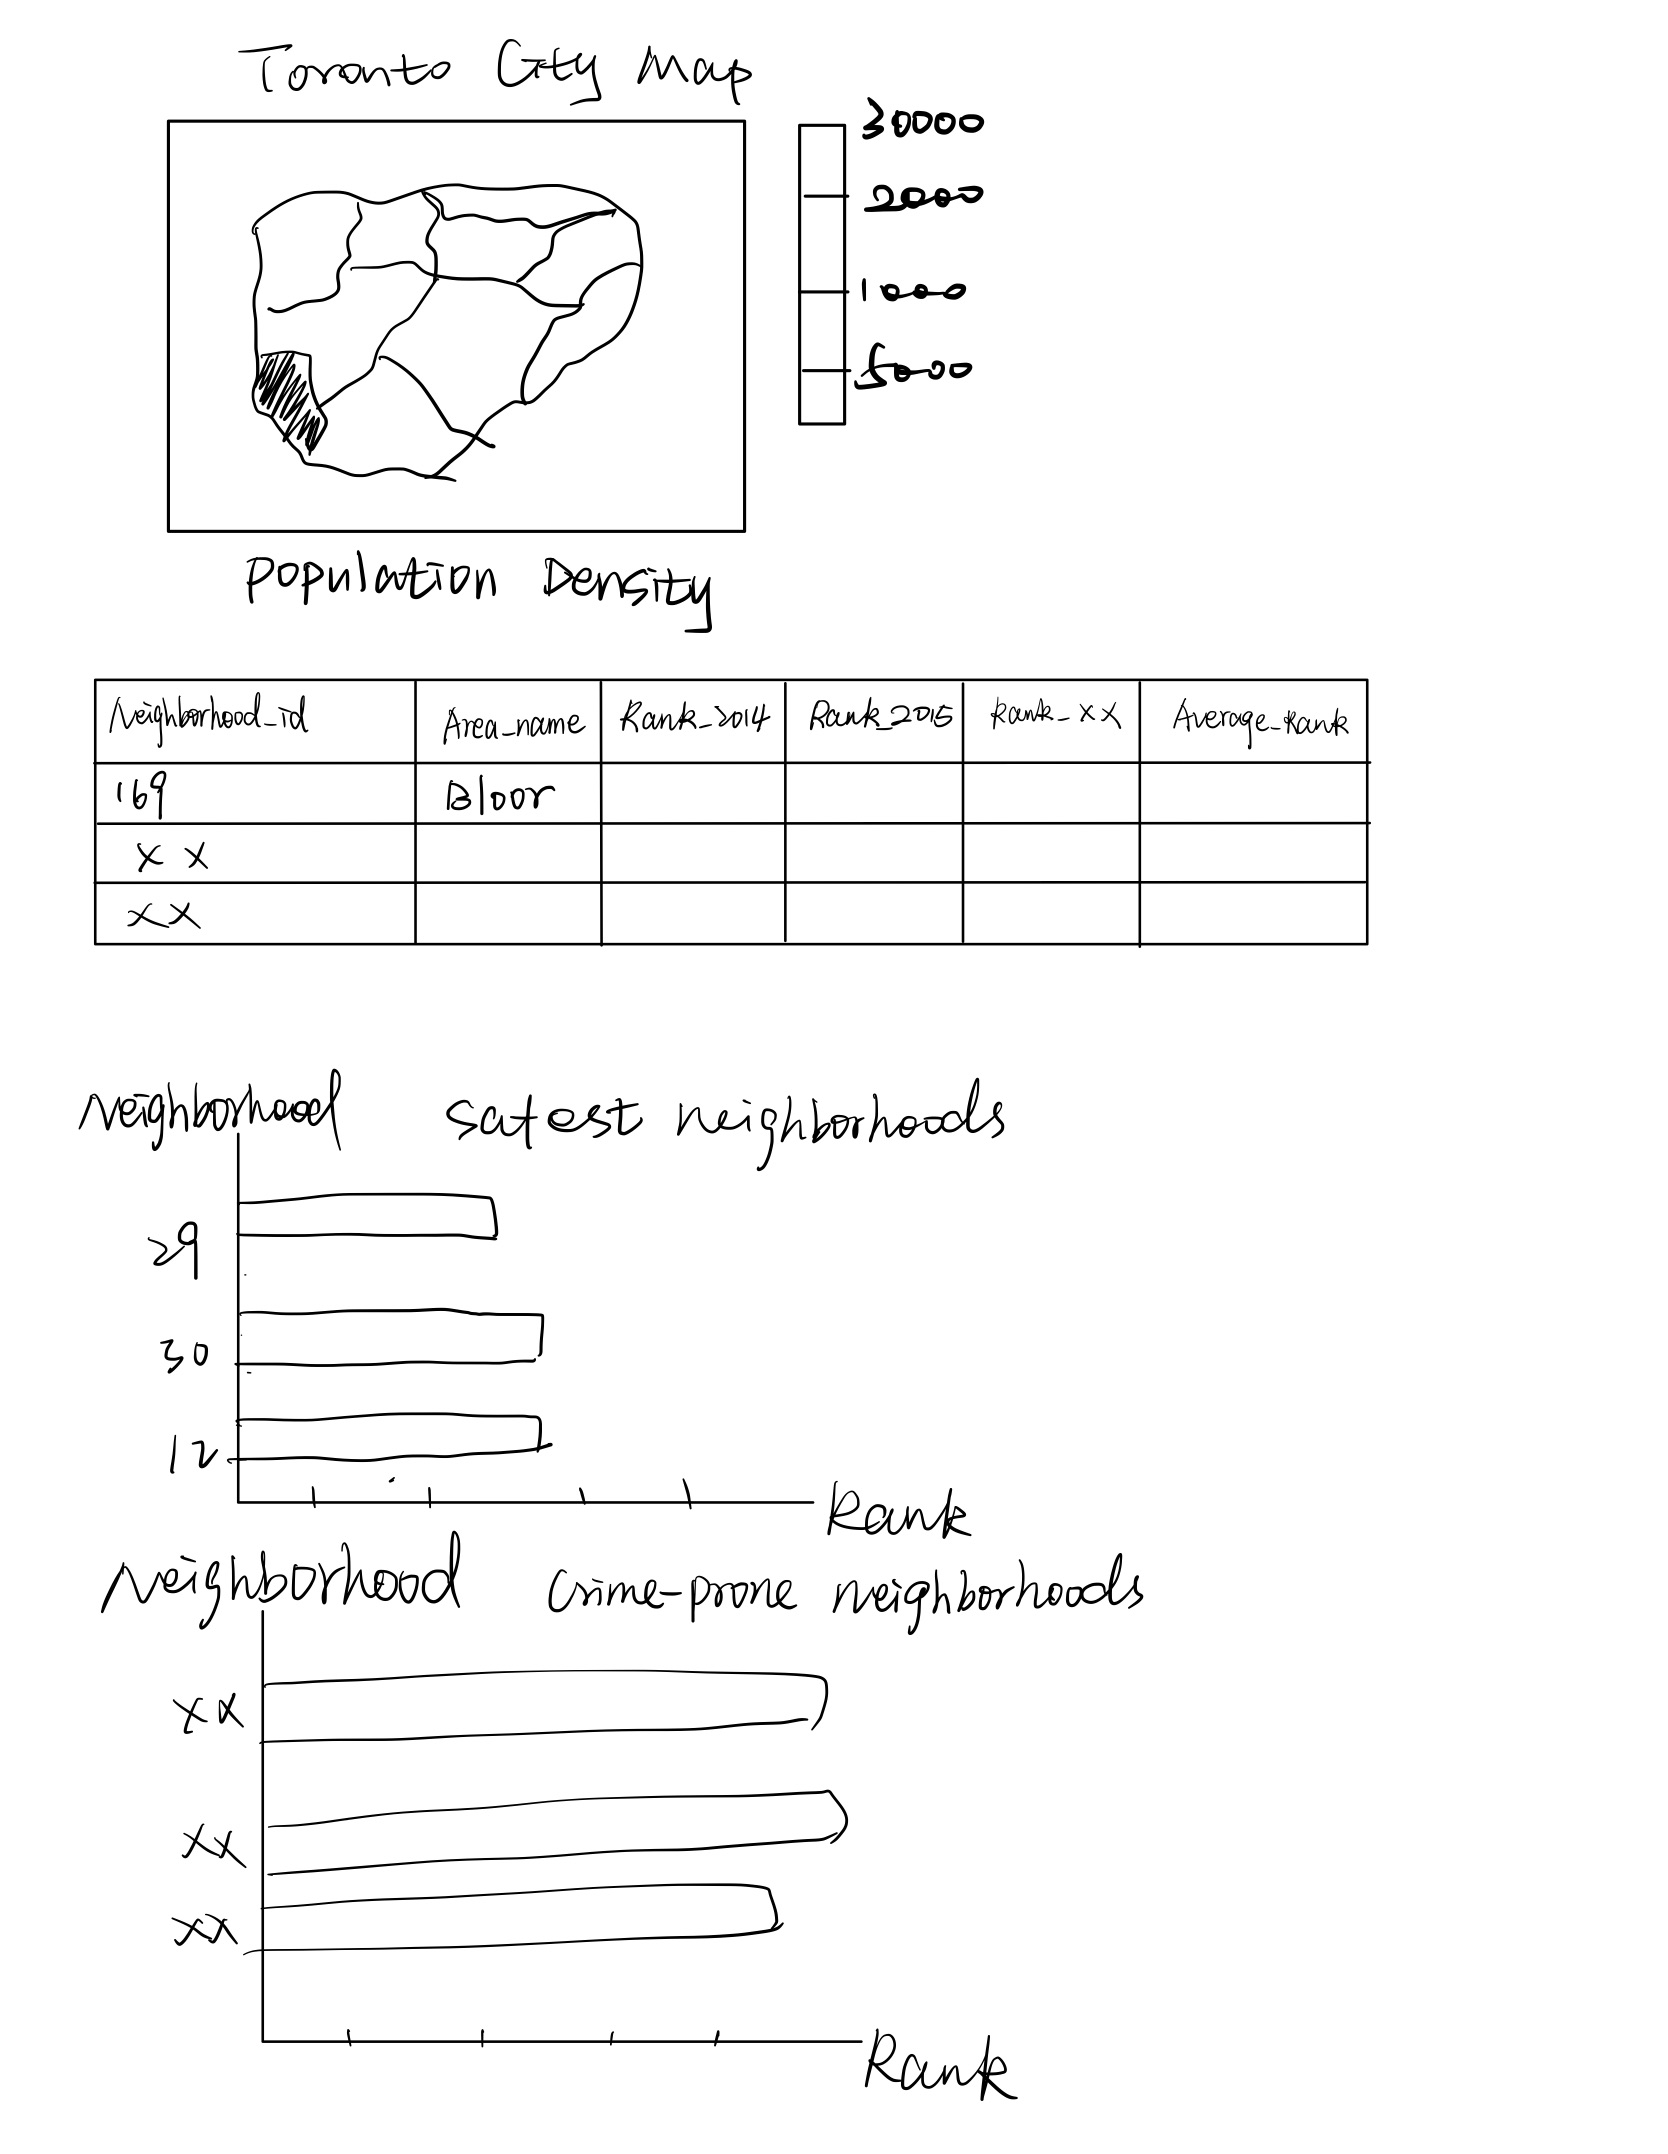 Toronto City Map
30000
2000
1000
5000
Population Density
Neighborhood_id Area_name Rank_2014 Rank_2015 Rank_xx Average_Rank
169 Bloor
x x
xx
Neighborhood Satest neighborhoods
29
30
12
Rank
Neighborhood Crime-prone neighborhoods
xx
xx
xx
Rank